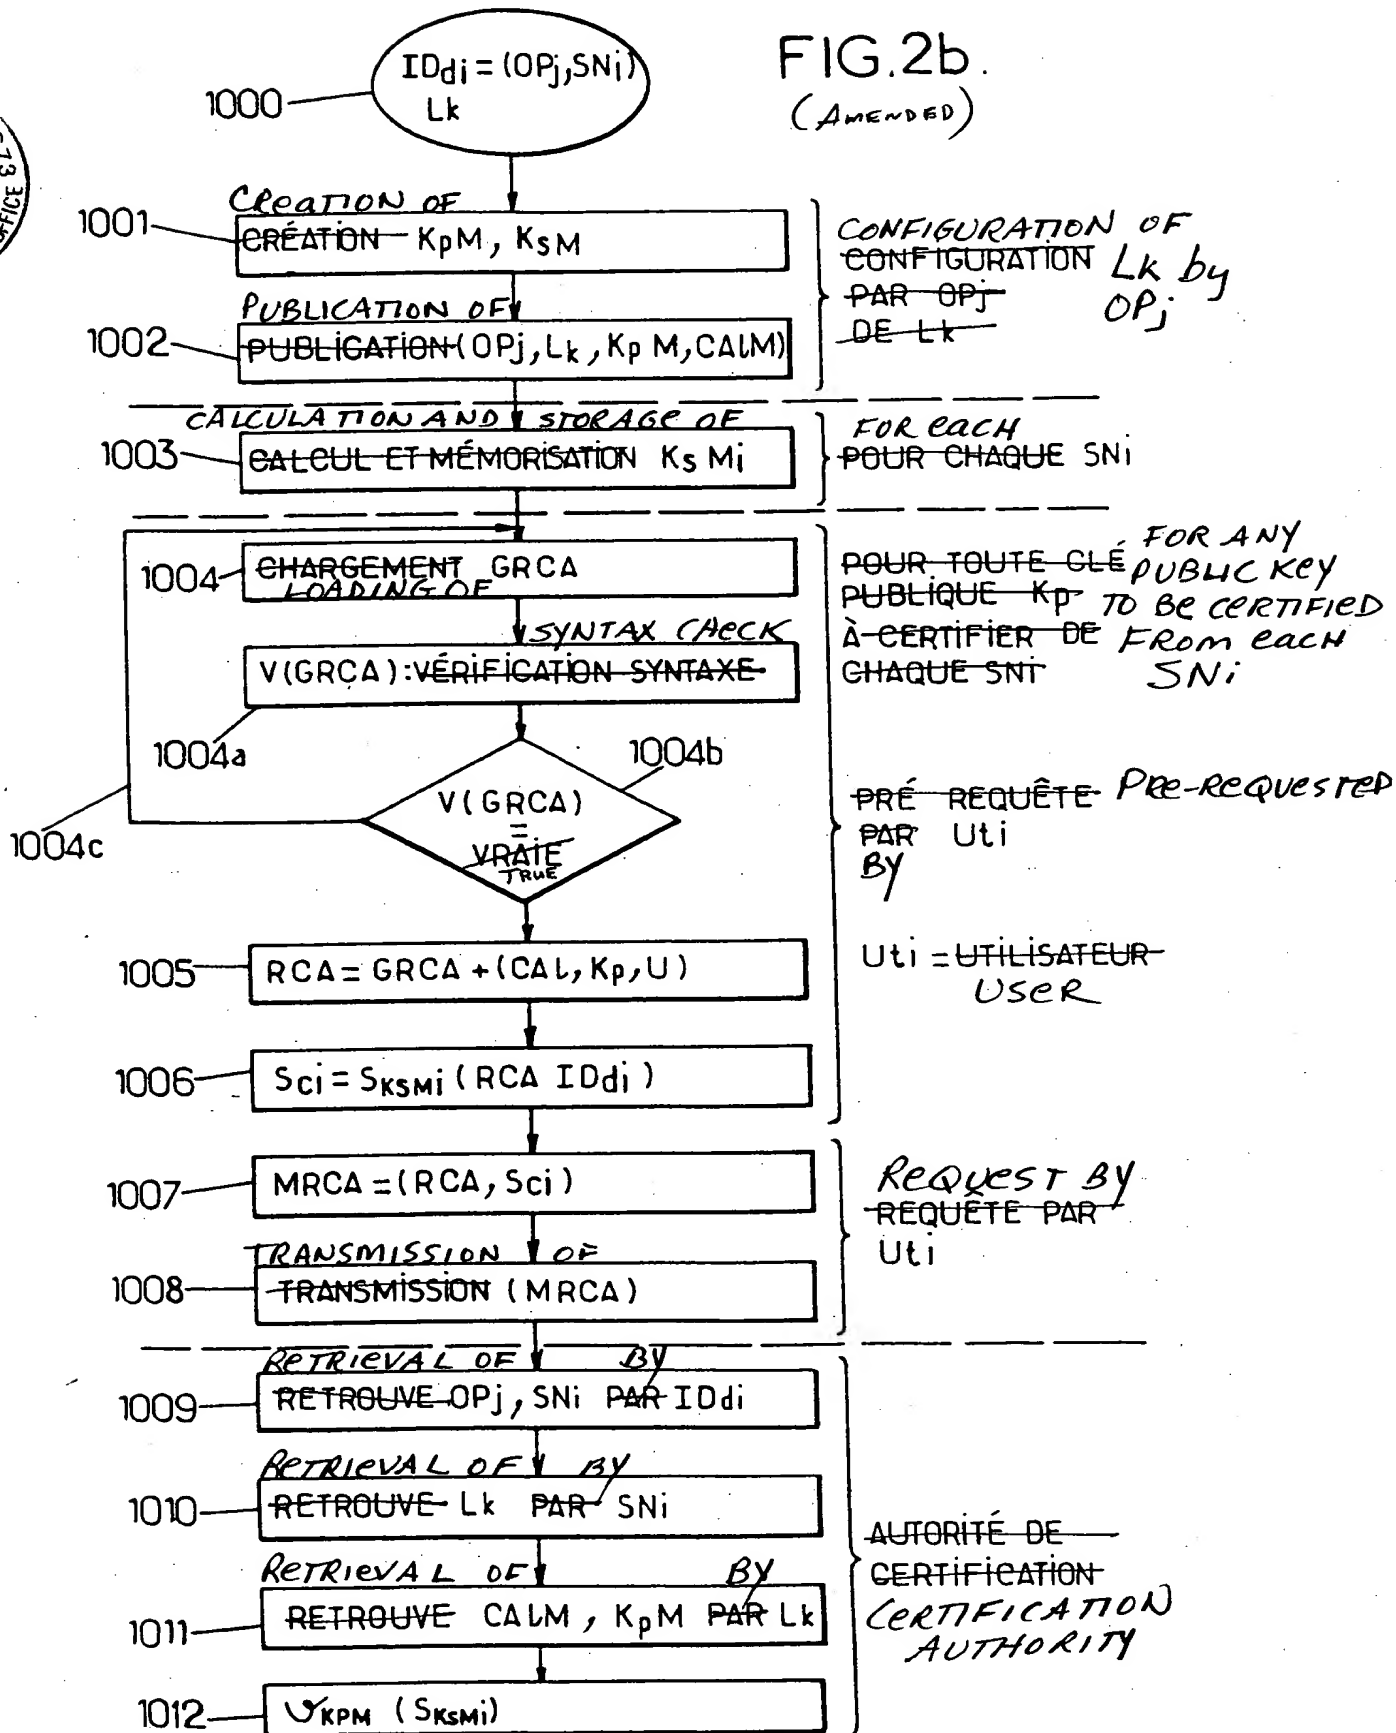 FIG.2b.
(AMENDED)
IDdi = (OPj,SNi)
Lk
1000
CREATION OF
1001
CRÉATION KpM, KsM
PUBLICATION OF
1002
PUBLICATION (OPj, Lk, KpM, CALM)
CONFIGURATION OF
CONFIGURATION Lk by
PAR OPj OPj
DE Lk
CALCULATION AND STORAGE OF
1003
CALCUL ET MÉMORISATION KsMi
FOR EACH
POUR CHAQUE SNi
1004
CHARGEMENT GRCA
LOADING OF
SYNTAX CHECK
V(GRCA):VÉRIFICATION SYNTAXE
1004a
1004b
V(GRCA)
=
VRAIE
TRUE
1004c
FOR ANY
POUR TOUTE CLÉ PUBLIC KEY
PUBLIQUE Kp TO BE CERTIFIED
À CERTIFIER DE FROM EACH
CHAQUE SNi SNi
PRÉ REQUÊTE PRE-REQUESTED
PAR Uti
BY
Uti = UTILISATEUR
USER
1005
RCA = GRCA + (CAL, Kp, U)
1006
Sci = SKSMi (RCA IDdi)
1007
MRCA = (RCA, Sci)
TRANSMISSION OF
1008
TRANSMISSION (MRCA)
REQUEST BY
REQUÊTE PAR
Uti
RETRIEVAL OF BY
1009
RETROUVE OPj, SNi PAR IDdi
RETRIEVAL OF BY
1010
RETROUVE Lk PAR SNi
RETRIEVAL OF BY
1011
RETROUVE CALM, KpM PAR Lk
1012
VKPM (SKsMi)
AUTORITÉ DE
CERTIFICATION
CERTIFICATION
AUTHORITY